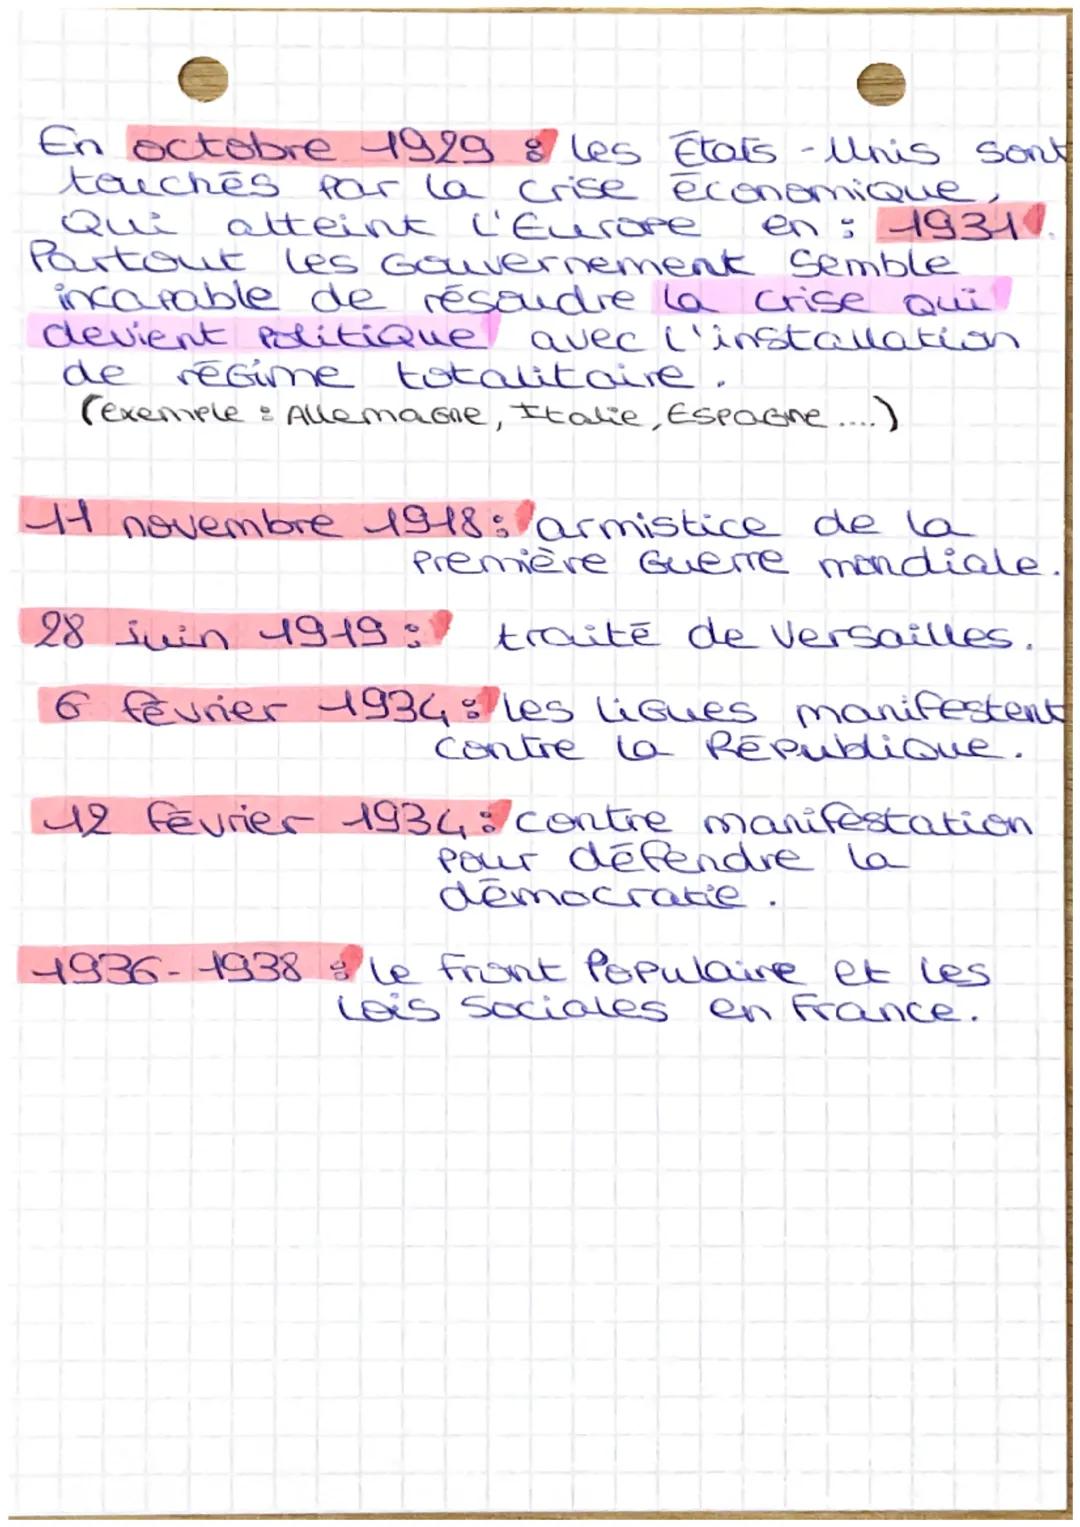 En octobre 1929 : les États-Unis sont
touchés par la crise économique,
Qui atteint l'Europe en : 1931.
Partout les Gouvernement semble
incapable de résoudre la crise qui
devient politique avec l'installation
de régime totalitaire.
(exemple : Allemagne, Italie, Espagne....)
11 novembre 1918 : armistice de la
première Guerre mondiale.
28 juin 1919 : traité de Versailles.
6 février 1934 : les ligues manifestent
contre la République.
12 février 1934 : contre manifestation
pour défendre la
démocratie.
1936-1938 : le Front Populaire et les
lois sociales en France.